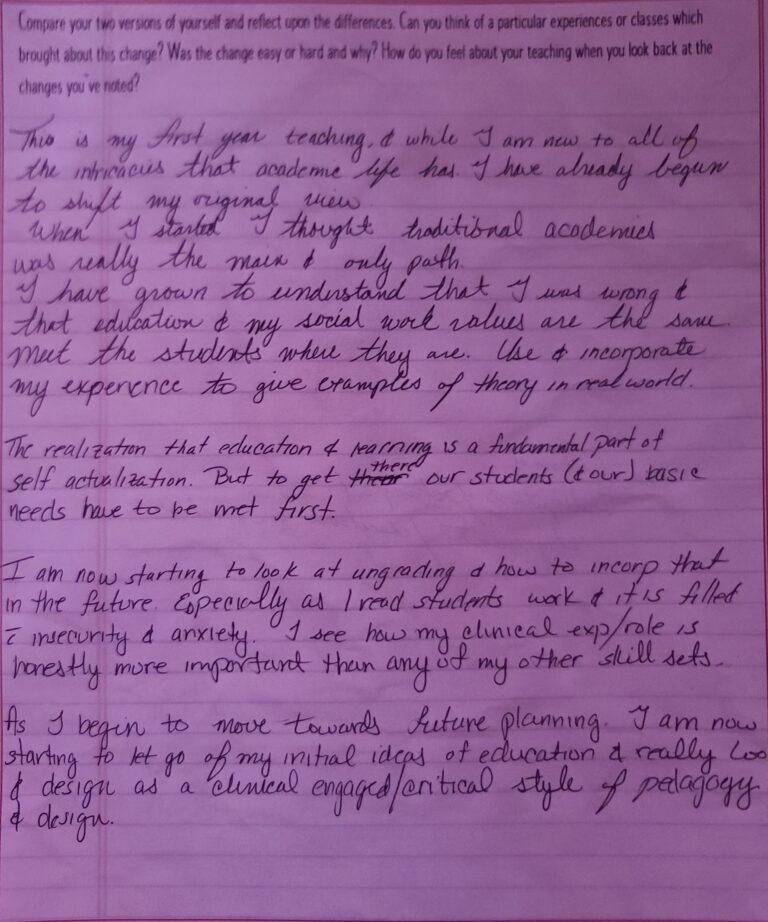 Compare your two versions of yourself and reflect upon the differences. Can you think of a particular experiences or classes which
brought about this change? Was the change easy or hard and why? How do you feel about your teaching when you look back at the
changes you've noted?
This is my first year teaching, & while I am new to all of
the intricacies that academe life has. I have already begun
to shift my original view.
When I started I thought traditional academics
was really the main & only path.
I have grown to understand that I was wrong &
that education & my social work values are the same.
Meet the students where they are. Use & incorporate
my experence to give examples of theory in real world.
The realization that education & learning is a fundamental part of
self actualization. But to get there our students (& our) basic
needs have to be met first.
I am now starting to look at ungrading & how to incorp that
in the future. Especially as I read students work & it is filled
c̄ insecurity & anxiety. I see how my clinical exp/role is
honestly more important than any of my other skill sets.
As I begin to move towards future planning. I am now
starting to let go of my initial ideas of education & really loo
& design as a clinical engaged/critical style of pedagogy
& design.